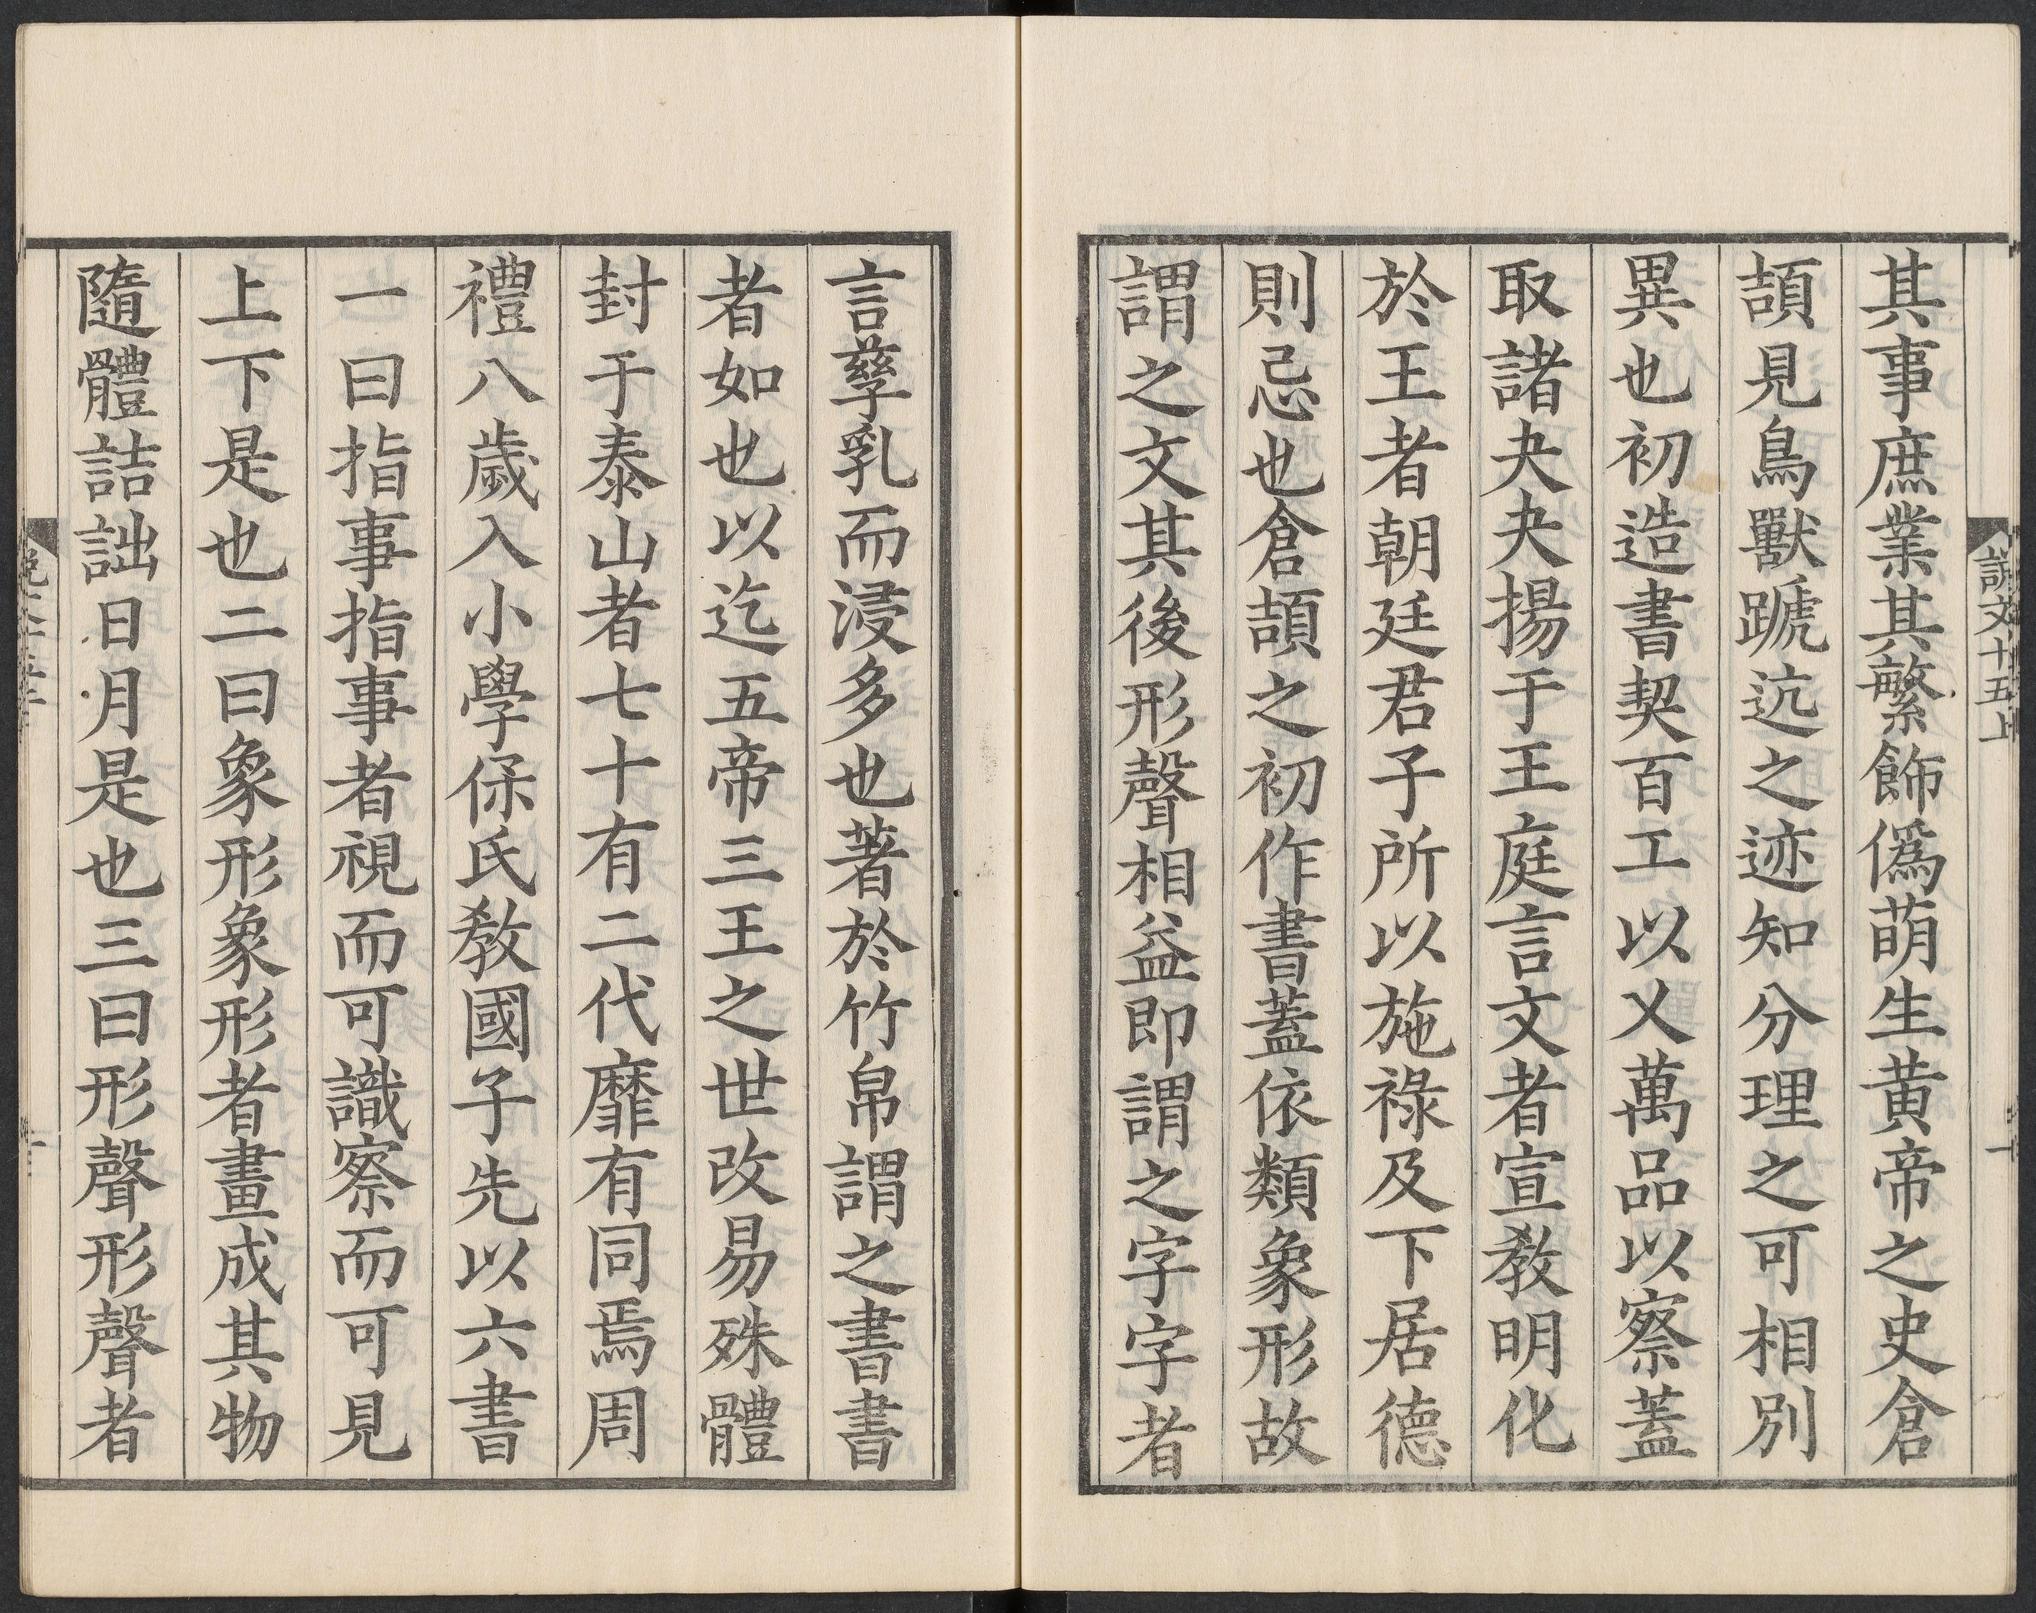 說文十五上
一
其事庶業其繁飾僞萌生黃帝之史倉
頡見鳥獸蹏迒之迹知分理之可相別
異也初造書契百工以乂萬品以察蓋
取諸夬夬揚于王庭言文者宣敎明化
於王者朝廷君子所以施祿及下居德
則忌也倉頡之初作書蓋依類象形故
謂之文其後形聲相益即謂之字字者
言孳乳而浸多也著於竹帛謂之書書
者如也以迄五帝三王之世改易殊體
封于泰山者七十有二代靡有同焉周
禮八歲入小學保氏敎國子先以六書
一曰指事指事者視而可識察而可見
上下是也二曰象形象形者畫成其物
隨體詰詘日月是也三曰形聲形聲者